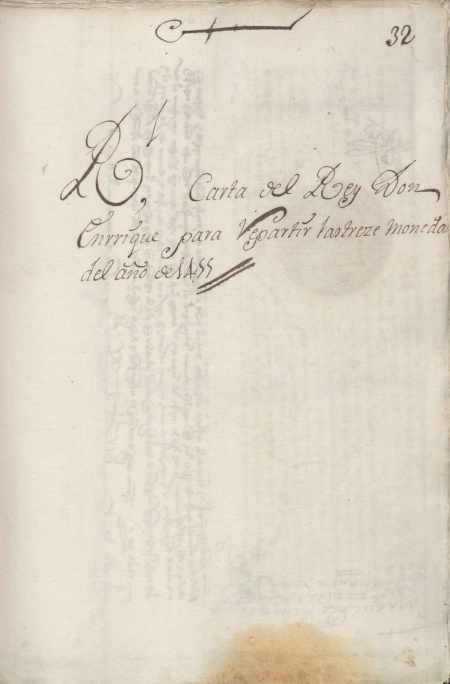 32
Rl, Carta del Rey Don
Enrrique para Repartir lastreze moneda
del año de 1455